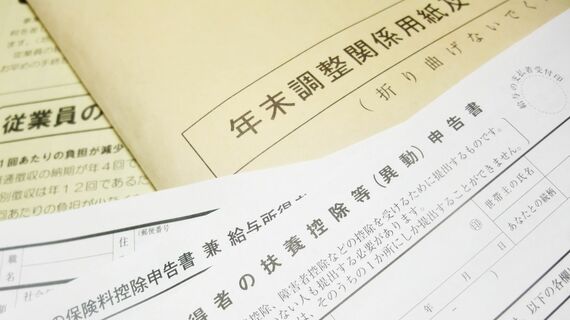 ます。
従業員の
お早めの手続
従業員の
1回あたりの負担が減少
通徴収の納期が年4回で
別徴収は年12回であるた
回あたりの負担が
年末調整関係用紙及
(折り曲げないでく
給与の支払者受付印
得者の扶養控除等(異動)申告書
、障害者控除などの控除を受けるために提出するものです。
ない人も提出する必要があります。
は、そのうちの1か所にしか提出することができません。
世帯主の氏名
あなたとの続柄
印
年
以下の各欄
の保険料控除申告書 兼 給与所得
(郵便番号
住
職
名